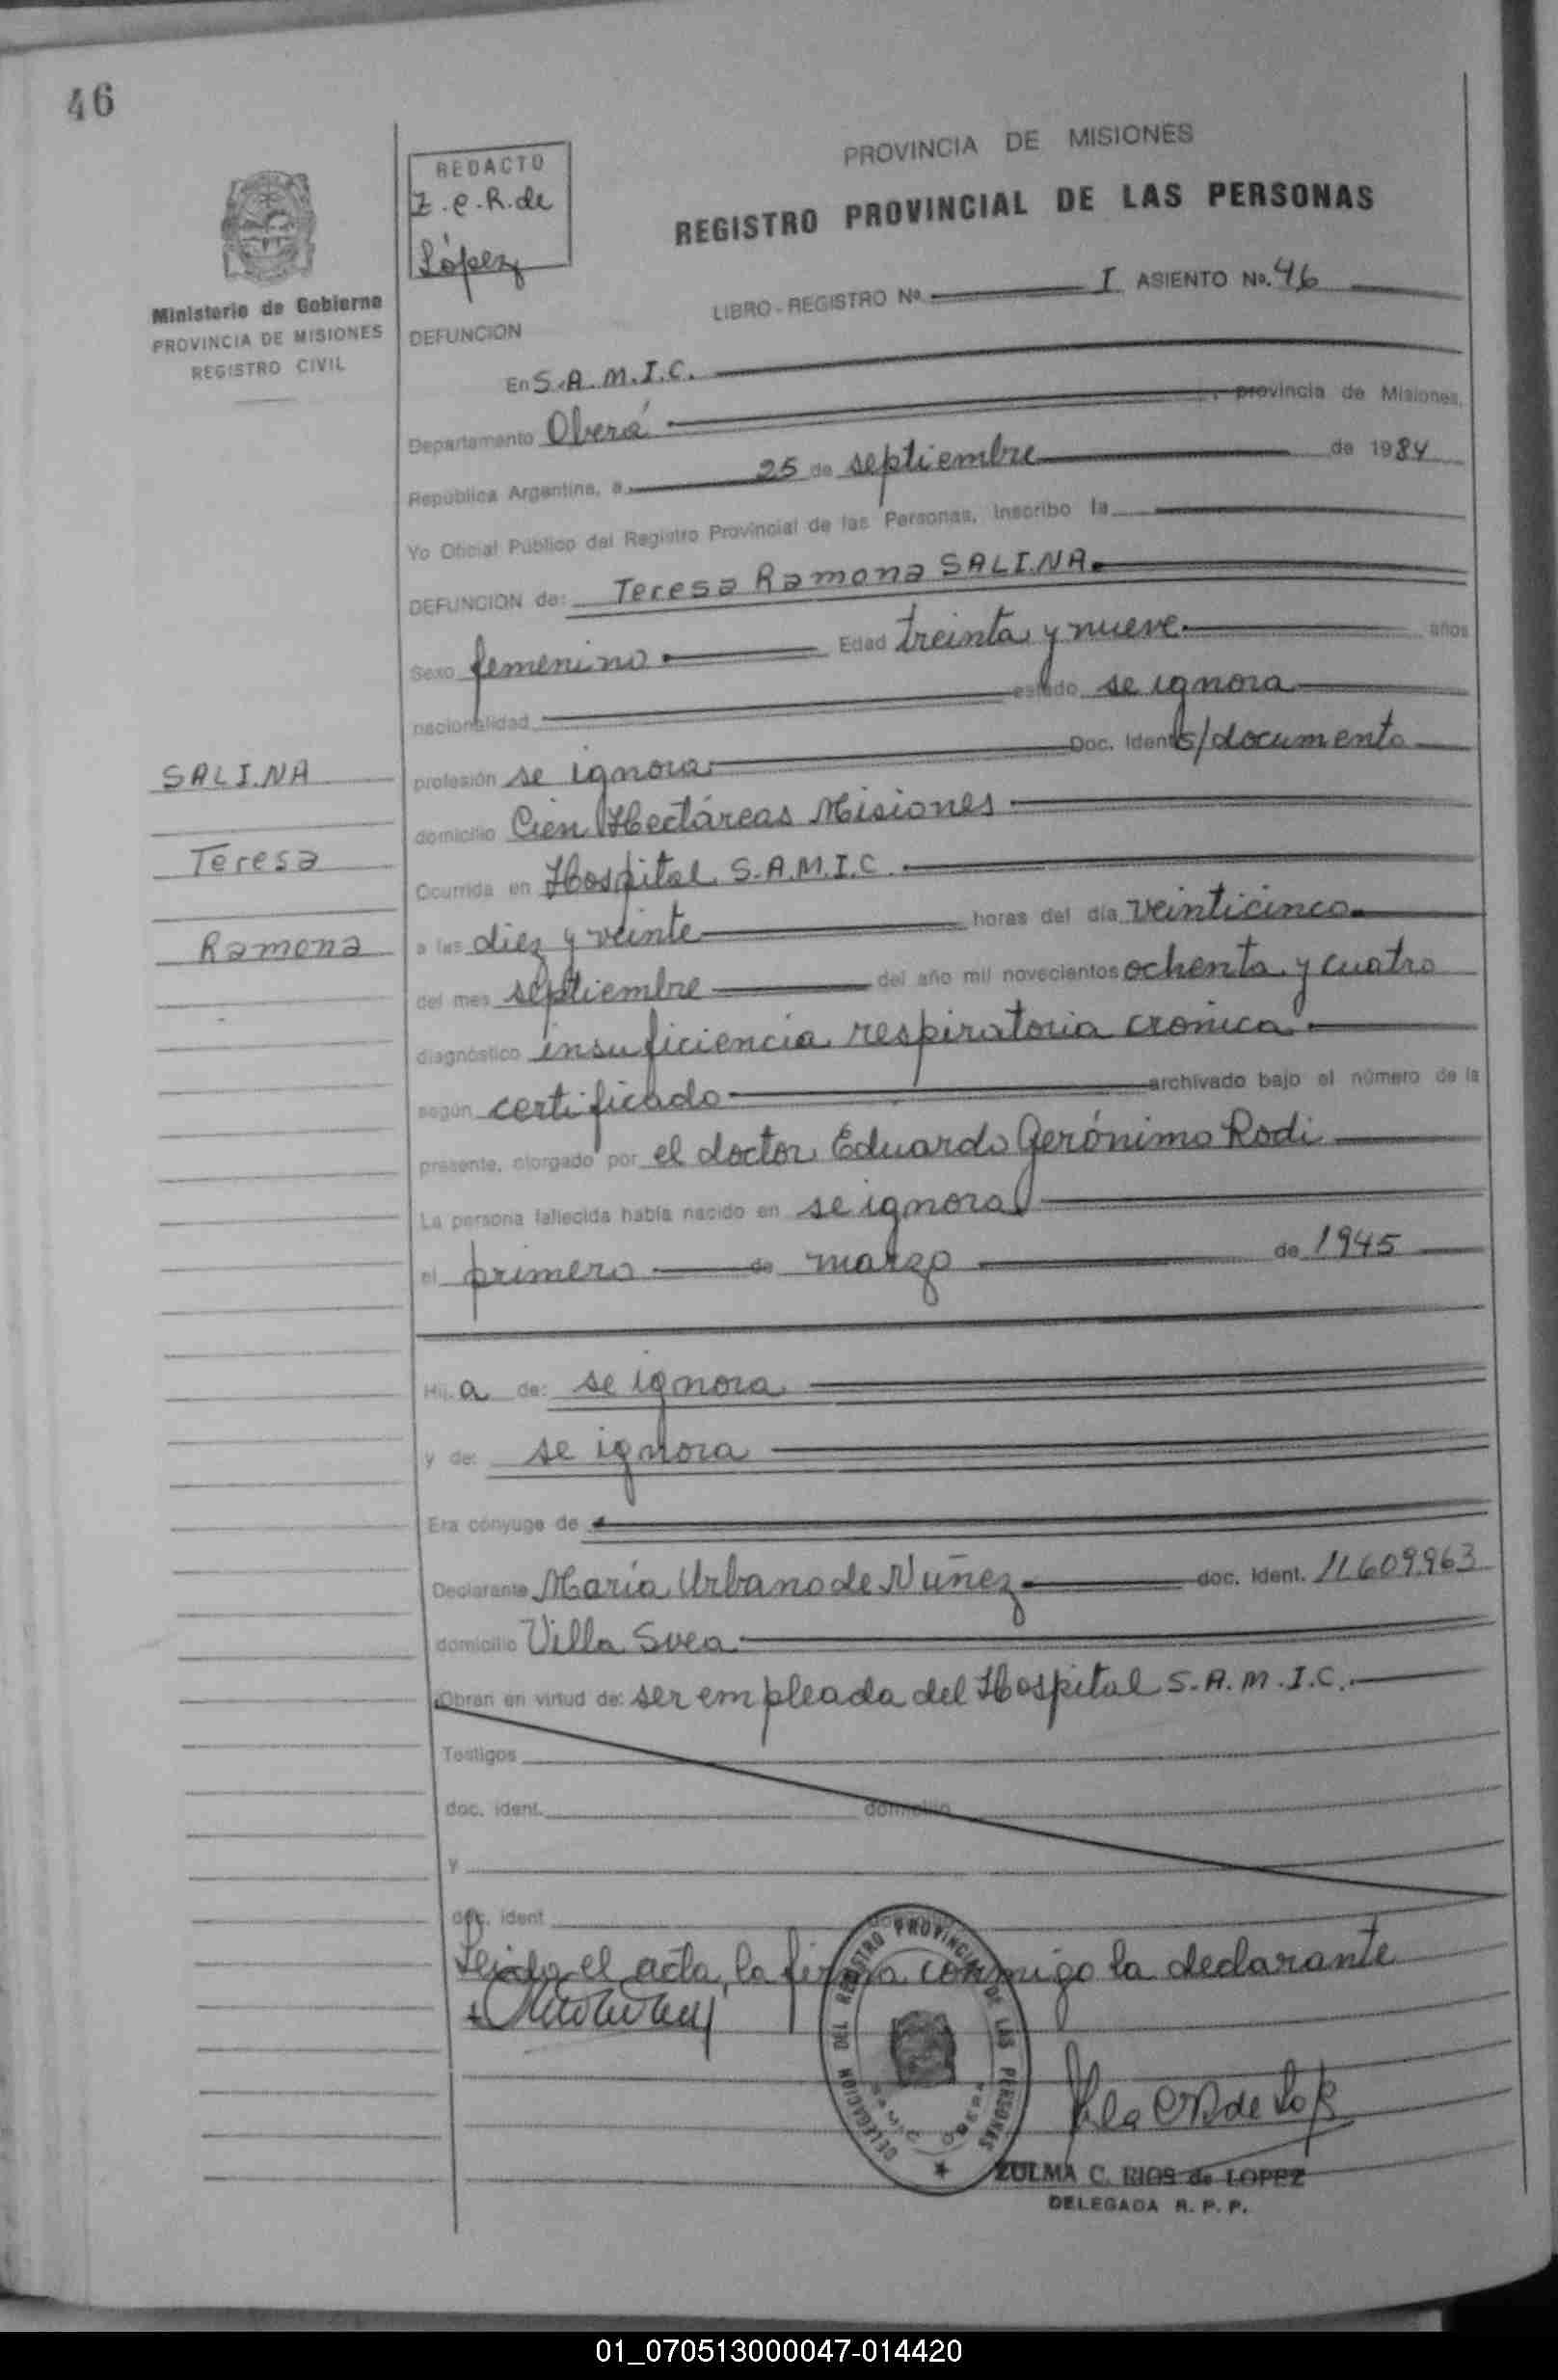 46
REDACTO
Z.C.R. de
López
PROVINCIA DE MISIONES
REGISTRO PROVINCIAL DE LAS PERSONAS
Ministerio de Gobierno
PROVINCIA DE MISIONES
REGISTRO CIVIL
LIBRO - REGISTRO No. I ASIENTO No. 46
DEFUNCION
En S.A.M.I.C.
Departamento Oberá, provincia de Misiones,
República Argentina, a 25 de septiembre de 1984
Yo Oficial Público del Registro Provincial de las Personas, inscribo la
DEFUNCION de: Teresa Ramona SALINA.
Sexo femenino Edad treinta y nueve años
nacionalidad estado se ignora
SALINA
profesión se ignora Doc. Ident. s/documento
domicilio Cien Hectáreas Misiones
Teresa
Ocurrida en Hospital S.A.M.I.C.
Ramona
a las diez y veinte horas del día veinticinco
del mes septiembre del año mil novecientos ochenta y cuatro
diagnóstico insuficiencia respiratoria cronica
según certificado archivado bajo el número de la
presente, otorgado por el doctor Eduardo Gerónimo Rodi
La persona fallecida había nacido en se ignora
el primero de marzo de 1945
Hij a de: se ignora
y de: se ignora
Era cónyuge de
Declarante María Urbano de Nuñez doc. Ident. 11.609.963
domicilio Villa Svea
Obran en virtud de: ser empleada del Hospital S.A.M.I.C.
Testigos
doc. ident. domicilio
y
doc. ident
Leida el acta, la firma conmigo la declarante
DELEGACION DEL REGISTRO PROVINCIAL DE LAS PERSONAS
SAMIC OBERA
ZULMA C. RIOS de LOPEZ
DELEGADA R. P. P.
01_070513000047-014420